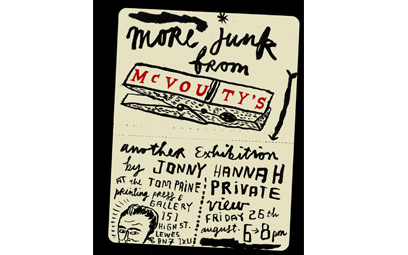 more junk
from
McVOUTY'S
another Exhibition
by JONNY HANNAH
AT the TOM PAINE PRIVATE
printing press & view
GALLERY FRIDAY 26th
151 august. 6→8pm
HIGH ST.
LEWES
BN7 1XU